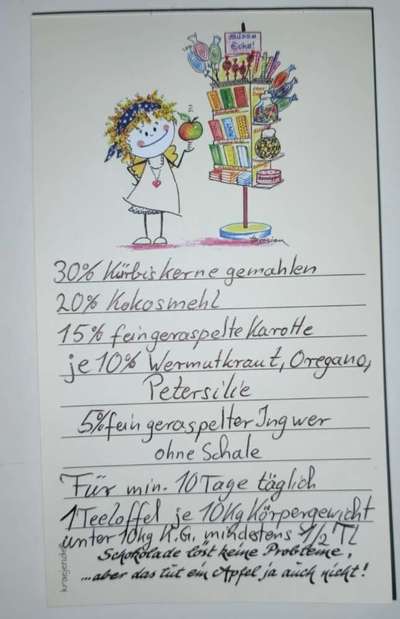 süße
Ecke!
30% Kürbiskerne gemahlen
20% Kokosmehl
15% feingeraspelte Karotte
je 10% Wermutkraut, Oregano,
Petersilie
5% feingeraspelter Ingwer
ohne Schale
Für min. 10 Tage täglich
1 Teeloffel je 10Kg Körpergewicht
unter 10kg K.G. mindestens 1/2 Tl
Schokolade löst keine Probleme,
...aber das tut ein Apfel ja auch nicht!